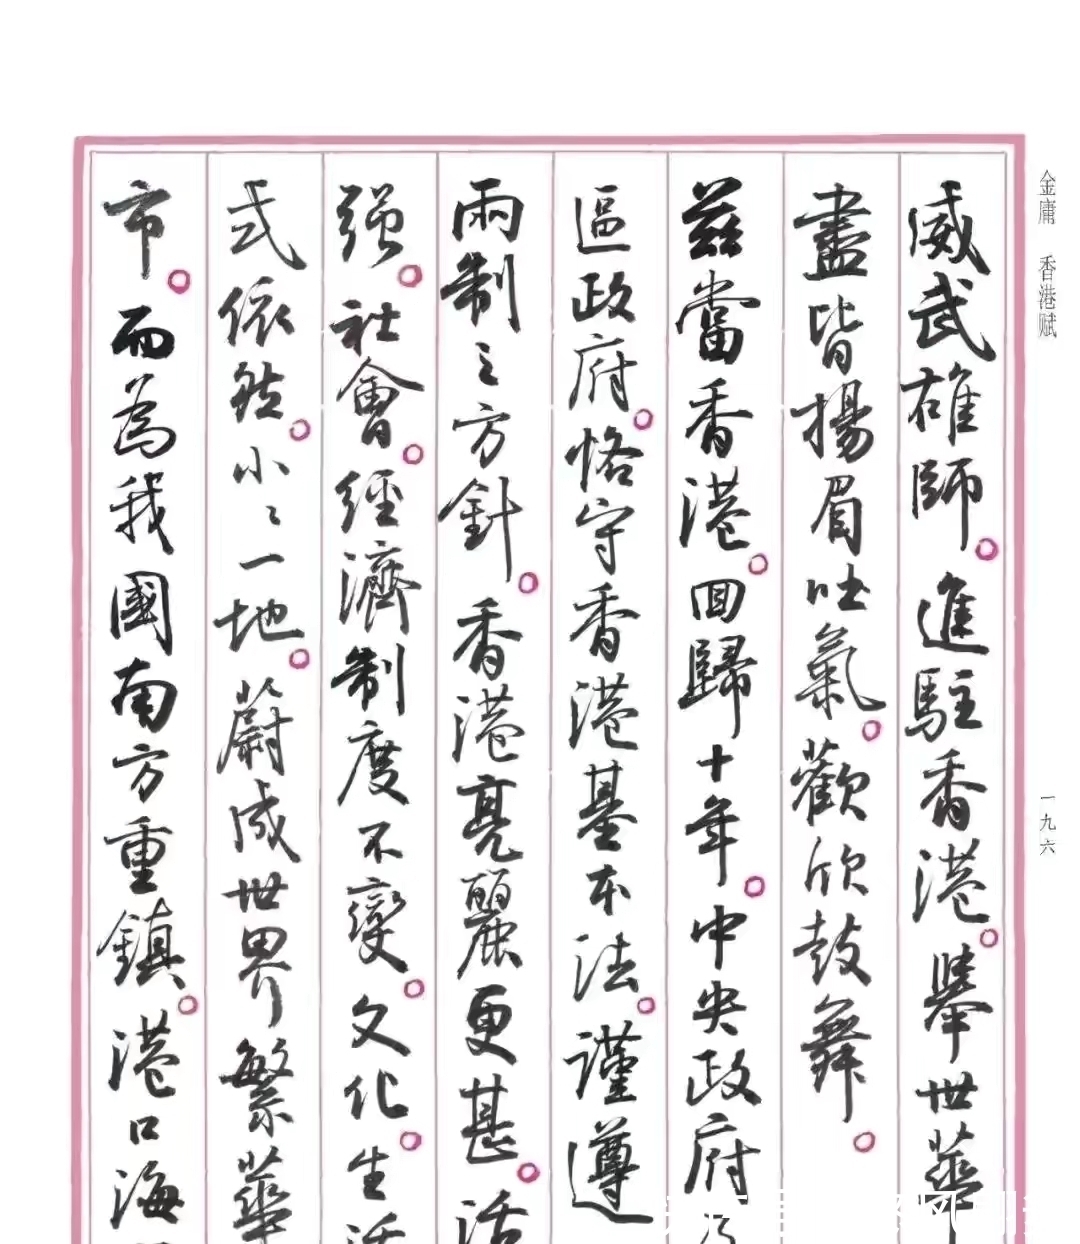 金庸 香港赋
一九六
威武雄師。進駐香港。舉世華
盡皆揚眉吐氣。歡欣鼓舞。
茲當香港。回歸十年。中央政府
區政府。恪守香港基本法。謹遵
兩制之方針。香港亮麗更甚。活
强。社會。經濟制度不變。文化。生活
式依然。小〻一地。蔚成世界繁華
市。而為我國南方重鎮。港口海